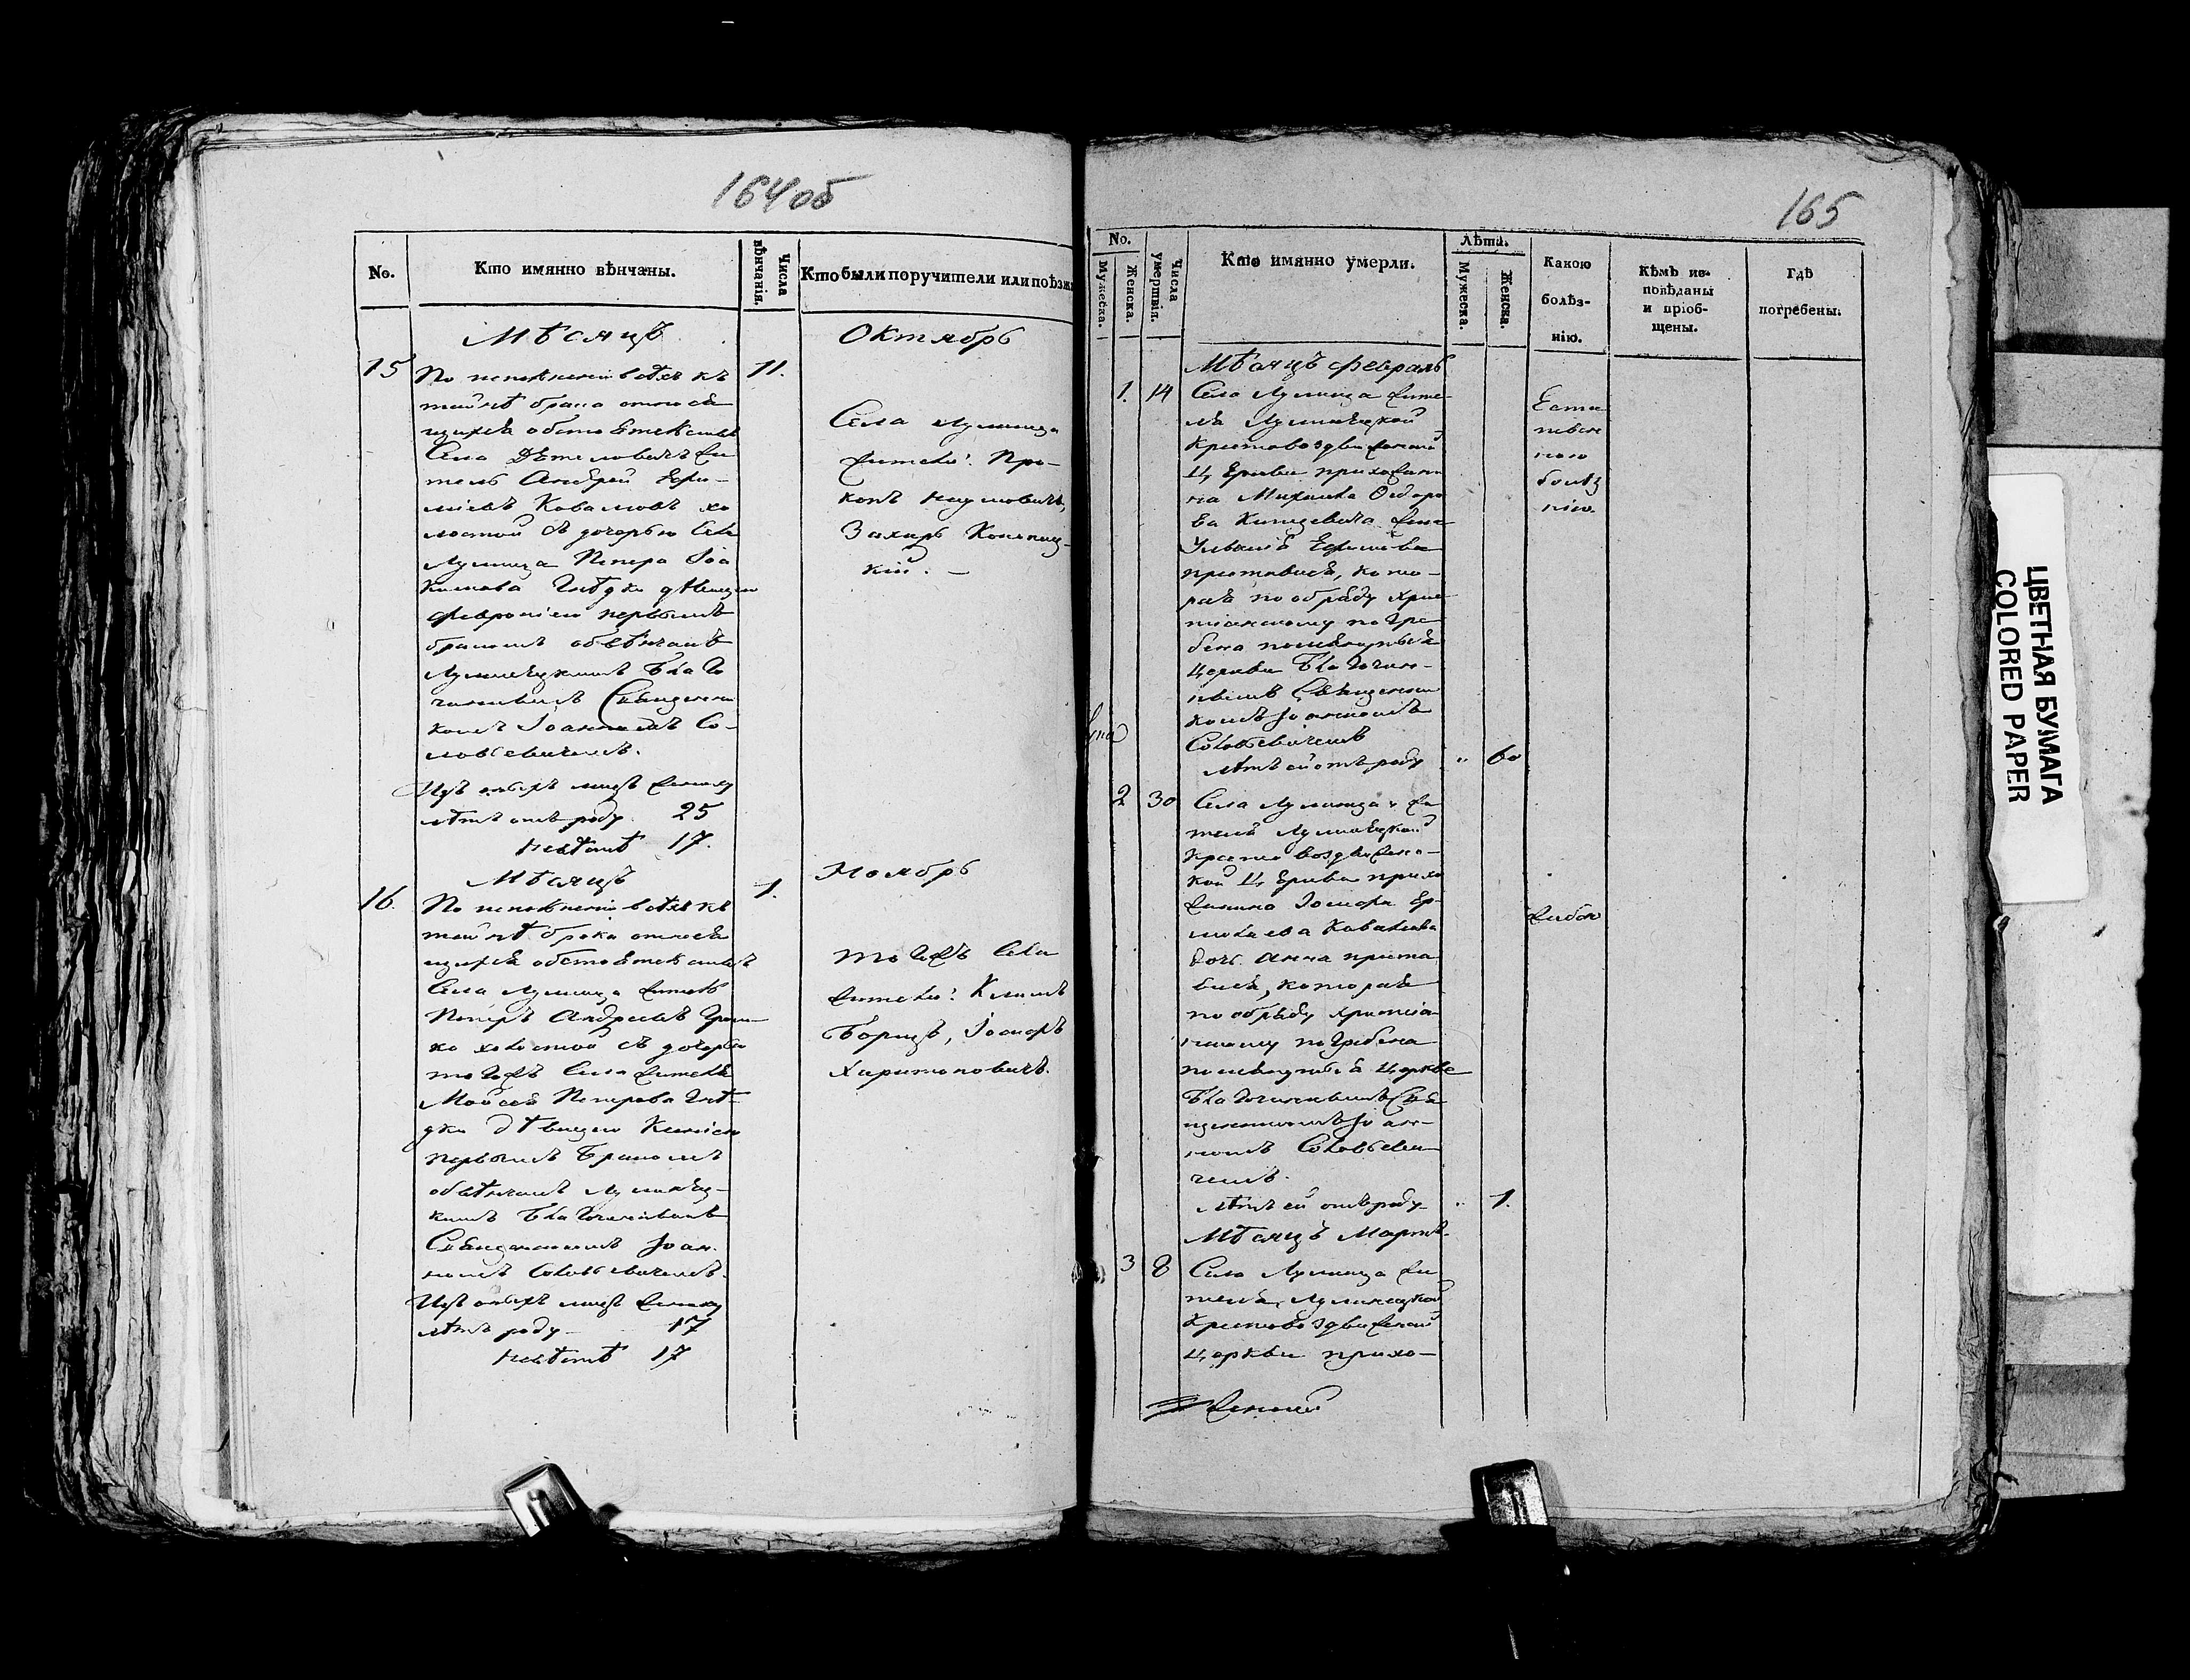 164об
No.
Кто имянно вѣнчаны.
Числа вѣнчанія.
Кто были поручители или поѣзж
Мѣсяцъ
Октябрь
15
11.
По исполненіи всѣхъ къ
тайнѣ брака относя
щихся обстоятельствъ
Села Дѣтеловичъ жи
тель Андрей Ефи-
міевъ Ковалювъ хо
лостой съ дочерью села
Лунинца Петра Іоа
кимова Гнѣдко дѣвицею
Февроніею первымъ
бракомъ обвѣнчанъ
Лунинецкимъ Благо
чиннымъ Священни
комъ Іоанномъ Со-
ловьевичемъ.
Изъ оныхъ лицъ жениху
лѣтъ отъ роду 25
невѣстѣ 17.
Села Лунинца
жители: Про-
копъ Наумовичъ,
Захаръ Конопац-
кій. —
Мѣсяцъ
Ноябрь
16.
1.
По исполненіи всѣхъ къ
тайнѣ брака относя
щихся обстоятельствъ
Села Лунинца житель
Петръ Андреевъ
ко холостой съ дочерью
тогожъ села жителя
Мойсея Петрова Гнѣ-
дки дѣвицею Ксенією
первымъ бракомъ
обвѣнчанъ Лунинец-
кимъ Благочиннымъ
Священникомъ Іоан-
номъ Соловьевичемъ.
Изъ оныхъ лицъ жениху
лѣтъ роду — 17
невѣстѣ 17
тогожъ села
жители: Климъ
Борицъ, Іосифъ
Харитоновичъ.
165
No.
Мужеска.
Женска.
Числа умертвія.
Кто имянно умерли.
Лѣта.
Мужеска.
Женска.
Какою болѣз-нію.
Кѣмъ ис-
повѣданы
и пріоб-
щены.
Гдѣ
погребены.
Мѣсяцъ Февраль
1. 14
Села Лунинца жите-
ля Лунинецкой
Крестовоздвиженской
Церкви прихожани
на Михаила Ѳедоро
ва Кинцевича жена
Ульянія Ефимова
преставися, кото-
рая по обряду хрис
тіанскому погре
бена помянутыя
церкви Благочин-
нымъ Священни
комъ Іоанномъ
Соловьевичемъ
лѣтъ ей отъ роду
" 60
Есте
ствен
ною
болѣз
нію.
2 30
Села Лунинца жи
теля Лунинецкой
Кресто воздвижен-
кой Церкви прихо
жанина Іосифа Ер-
молаева Ковалева
дочь Анна преста
вися, которая
по обряду христіа
нскому погребена
помянутыя церкве
Благочиннымъ Свя
щенникомъ Іоан-
номъ Соловьеви
чемъ.
лѣтъ ей отъ роду
" 1.
жабою
Мѣсяцъ Мартъ.
3 8
Села Лунинца жи
теля, Лунинецкой
Крестовоздвиженской
церкви прихо-
ЦВЕТНАЯ БУМАГА
COLORED PAPER